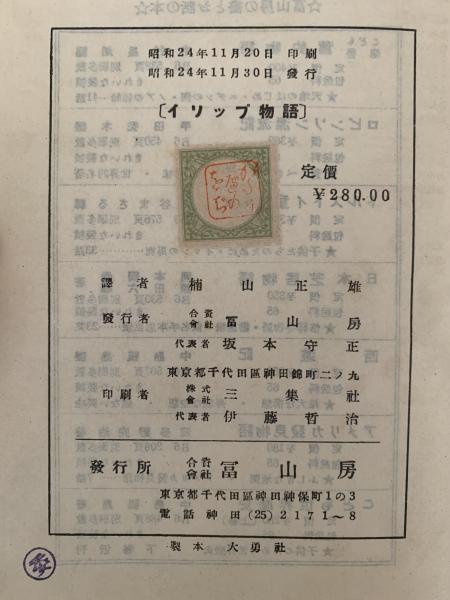 昭和24年11月20日 印刷
昭和24年11月30日 發行
〔イソップ物語〕
定價
￥280.00
譯者 楠山正雄
發行者 合資會社 冨山房
代表者 坂本守正
東京都千代田區神田錦町二ノ九
印刷者 株式會社 三集社
代表者 伊藤哲治
發行所 合資會社 冨山房
東京都千代田區神田神保町1の3
電話神田(25)2171〜8
製本 大勇社